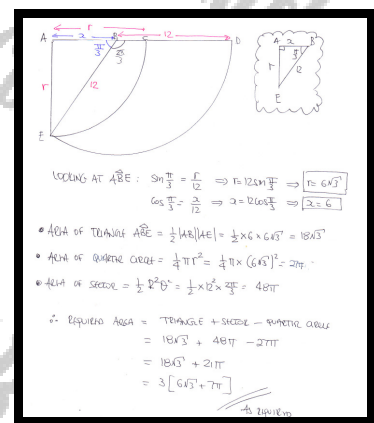 r
x
12
A
B
C
D
π/3
2π/3
r
12
E
A x B
π/3
r
12
E
LOOKING AT AB̂E : Sin π/3 = r/12 ⇒ r = 12 sin π/3 ⇒ r = 6√3
Cos π/3 = x/12 ⇒ x = 12 cos π/3 ⇒ x = 6
• AREA OF TRIANGLE AB̂E = 1/2 |AB||AE| = 1/2 × 6 × 6√3 = 18√3
• AREA OF QUARTER CIRCLE = 1/4 πr² = 1/4 π × (6√3)² = 27π
• AREA OF SECTOR = 1/2 R²θᶜ = 1/2 × 12² × 2π/3 = 48π
∴ REQUIRED AREA = TRIANGLE + SECTOR − QUARTER CIRCLE
= 18√3 + 48π − 27π
= 18√3 + 21π
= 3[6√3 + 7π]
As REQUIRED